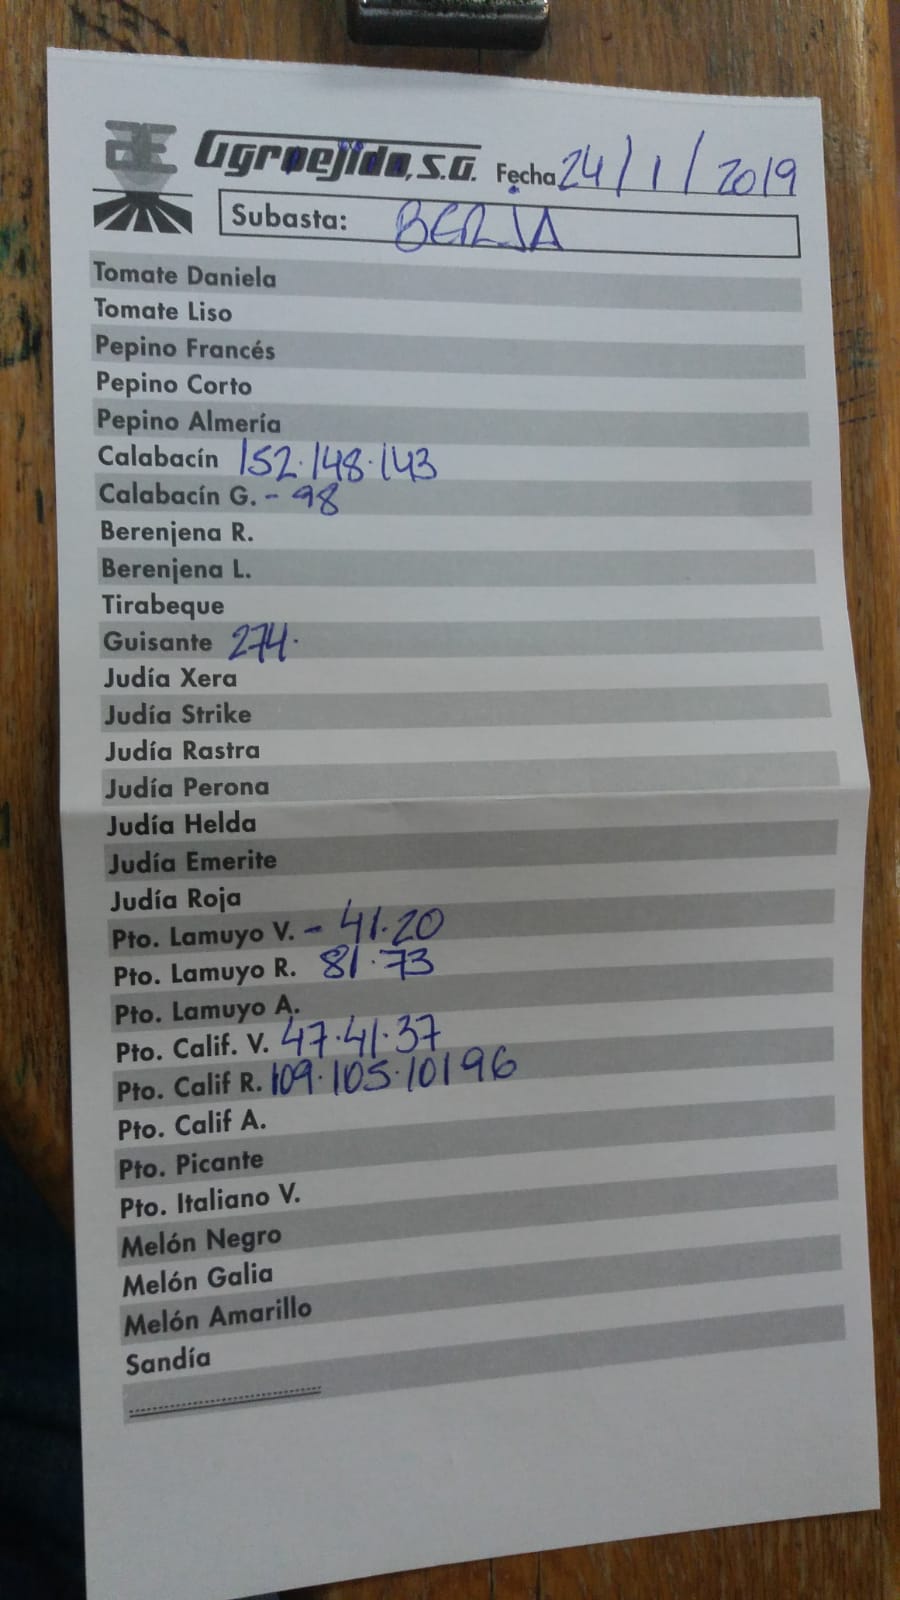 Agroejido, S.A. Fecha 24/1/2019
Subasta: BERJA
Tomate Daniela
Tomate Liso
Pepino Francés
Pepino Corto
Pepino Almería
Calabacín 152·148·143
Calabacín G. - 98
Berenjena R.
Berenjena L.
Tirabeque
Guisante 274·
Judía Xera
Judía Strike
Judía Rastra
Judía Perona
Judía Helda
Judía Emerite
Judía Roja
Pto. Lamuyo V. - 41·20
Pto. Lamuyo R. 81·73
Pto. Lamuyo A.
Pto. Calif. V. 47·41·37
Pto. Calif R. 109·105·101 96
Pto. Calif A.
Pto. Picante
Pto. Italiano V.
Melón Negro
Melón Galia
Melón Amarillo
Sandía